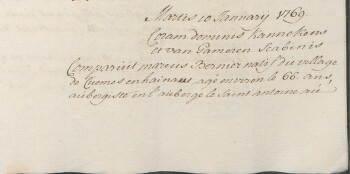 Martis 10 January 1769
Coram dominis hannekens
et van Pameren Scabinis
Comparuit marcus Bernier natif du village
de Cuemes en hainau, agé environ le 66 ans,
aubergiste en l'auberge le Saint antoine